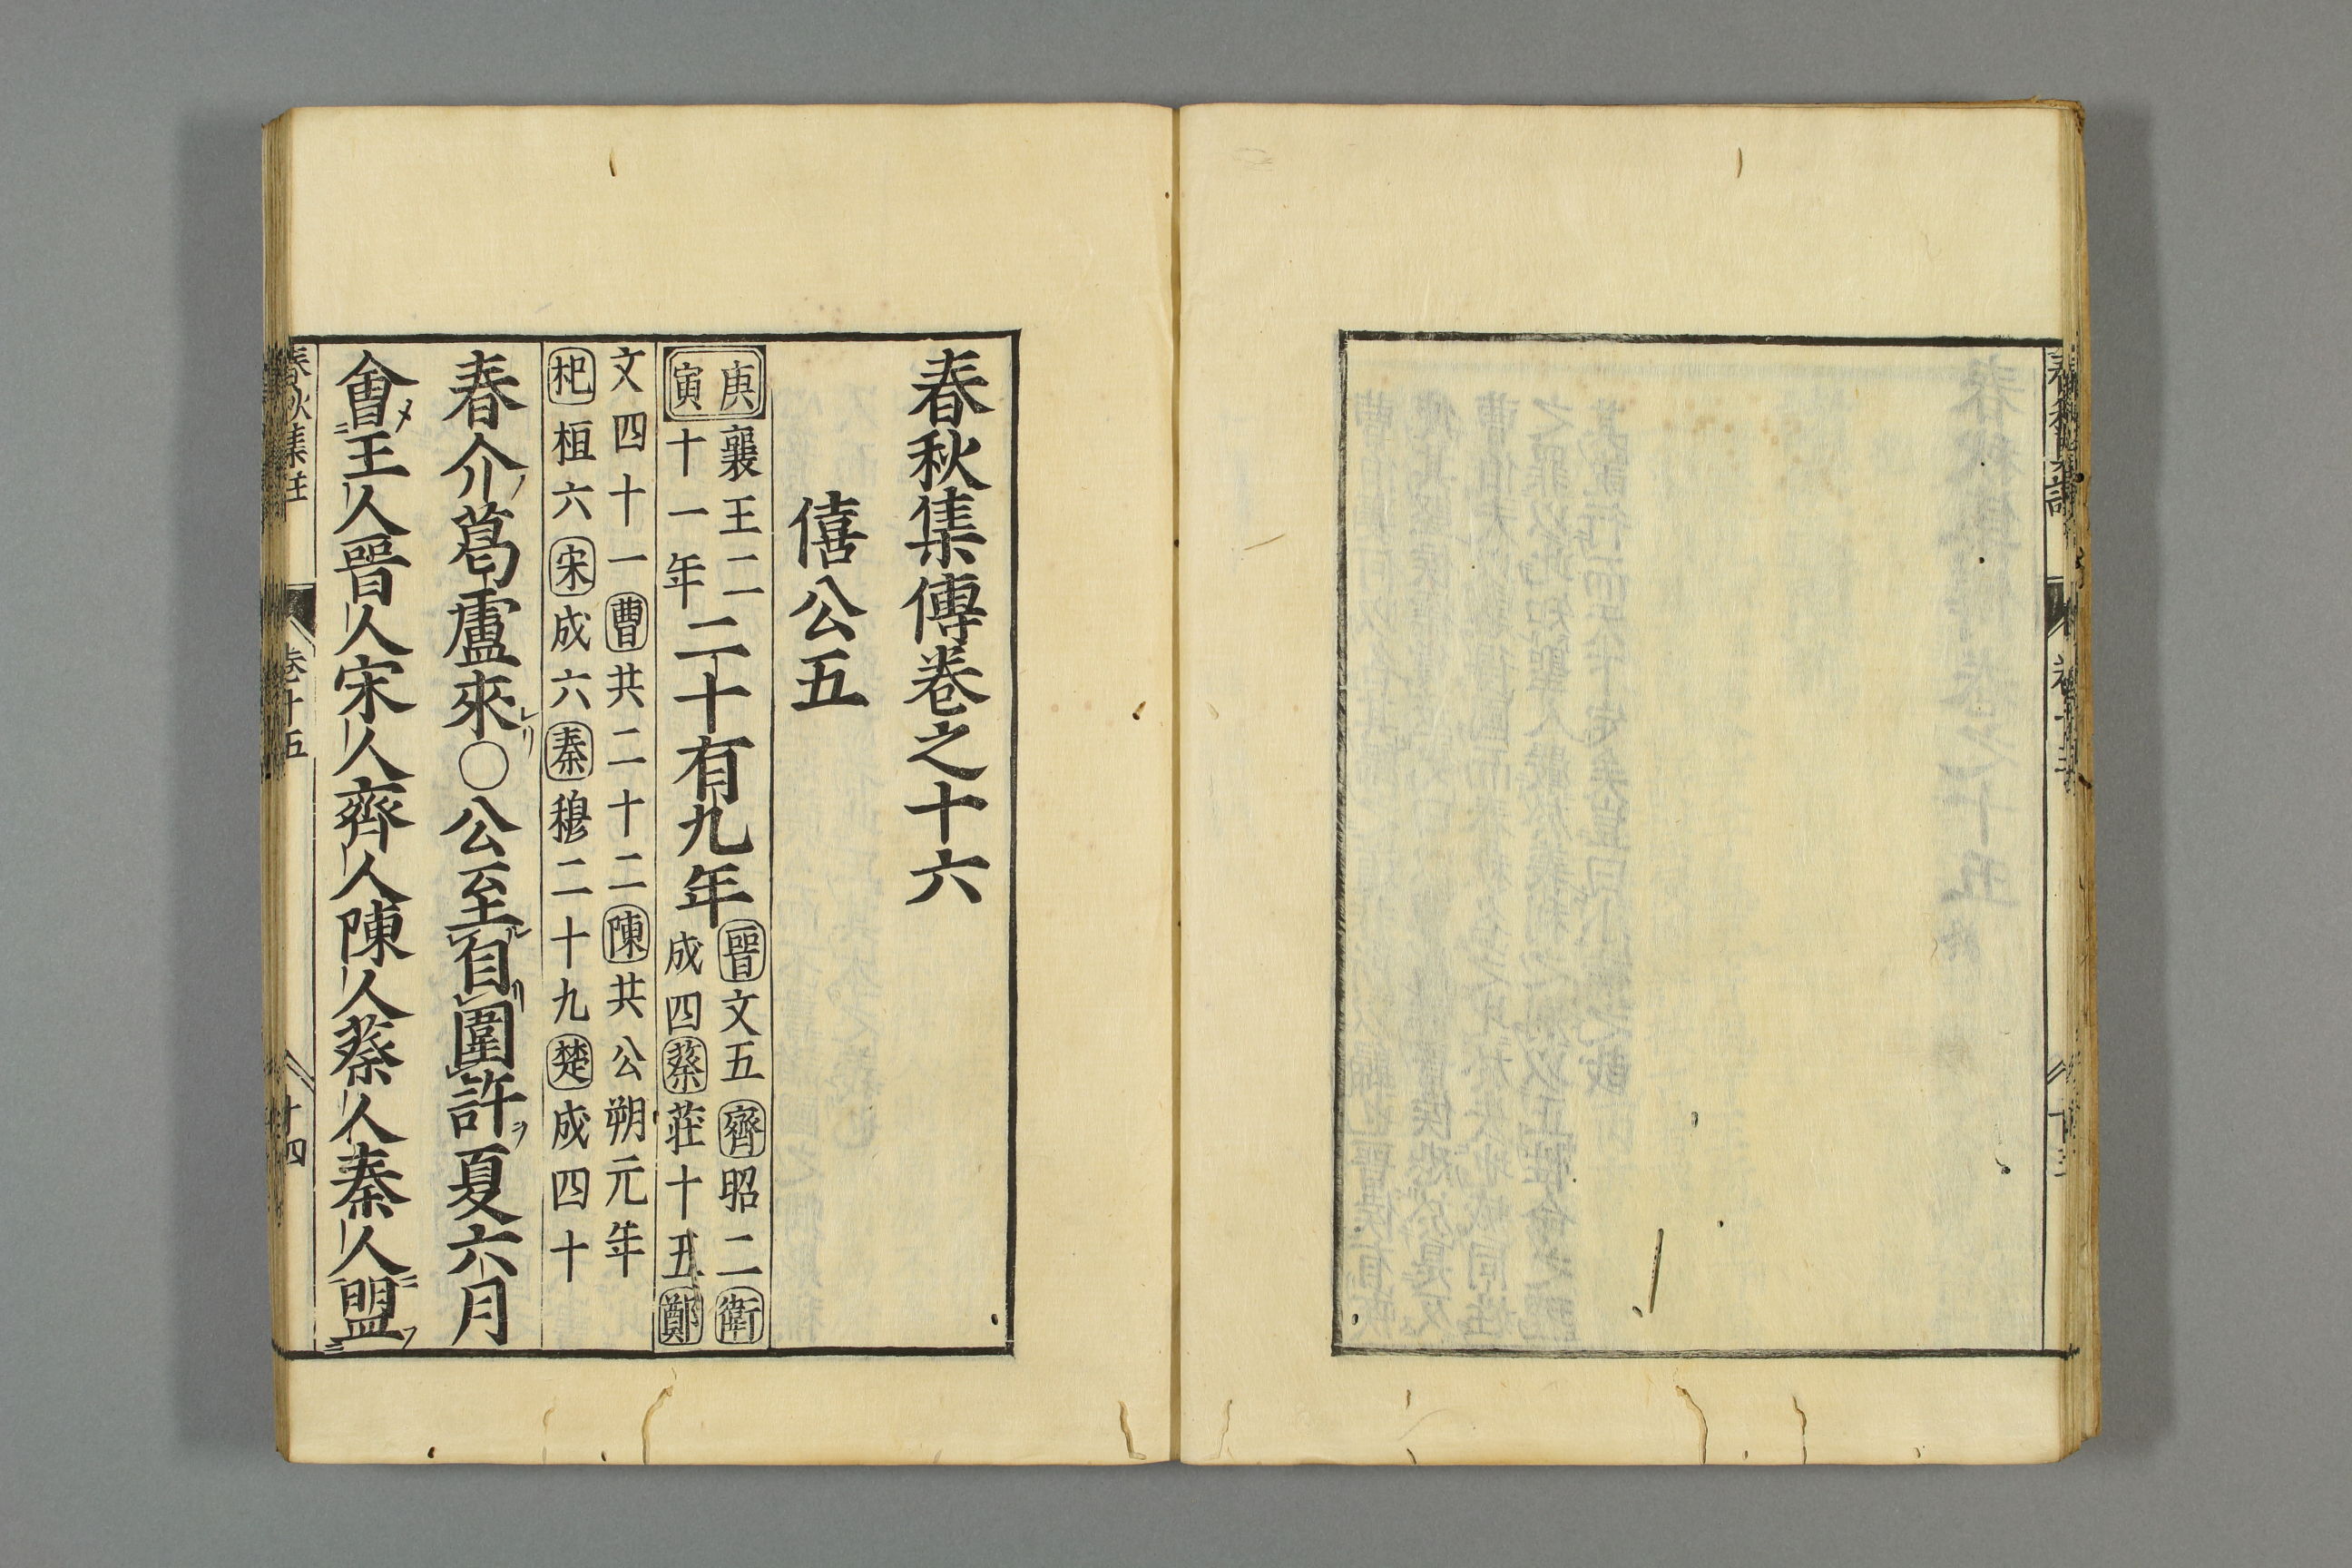 春秋集傳卷之十六
僖公五
庚寅
襄王二
十一年
二十有九年
晉文五齊昭二衛
成四蔡莊十五鄭
文四十一曹共二十二陳共公朔元年
杞桓六宋成六秦穆二十九楚成四十
春介葛盧來〇公至自圍許夏六月
會王人晉人宋人齊人陳人蔡人秦人盟
春秋集註 卷十五 十四